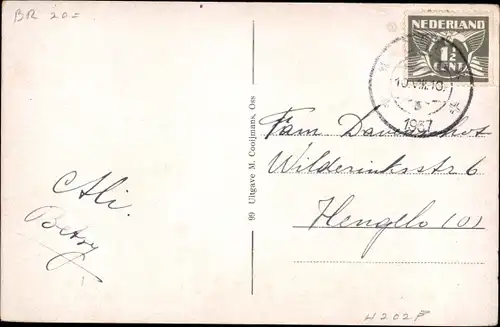 BR 20=
NEDERLAND
1½
CENT
10.VII.10.
1937
99 Uitgave M. Cooijmans, Oss
Fam
Wilderinksstr 6
Hengelo (O)
Ali.
Betsy